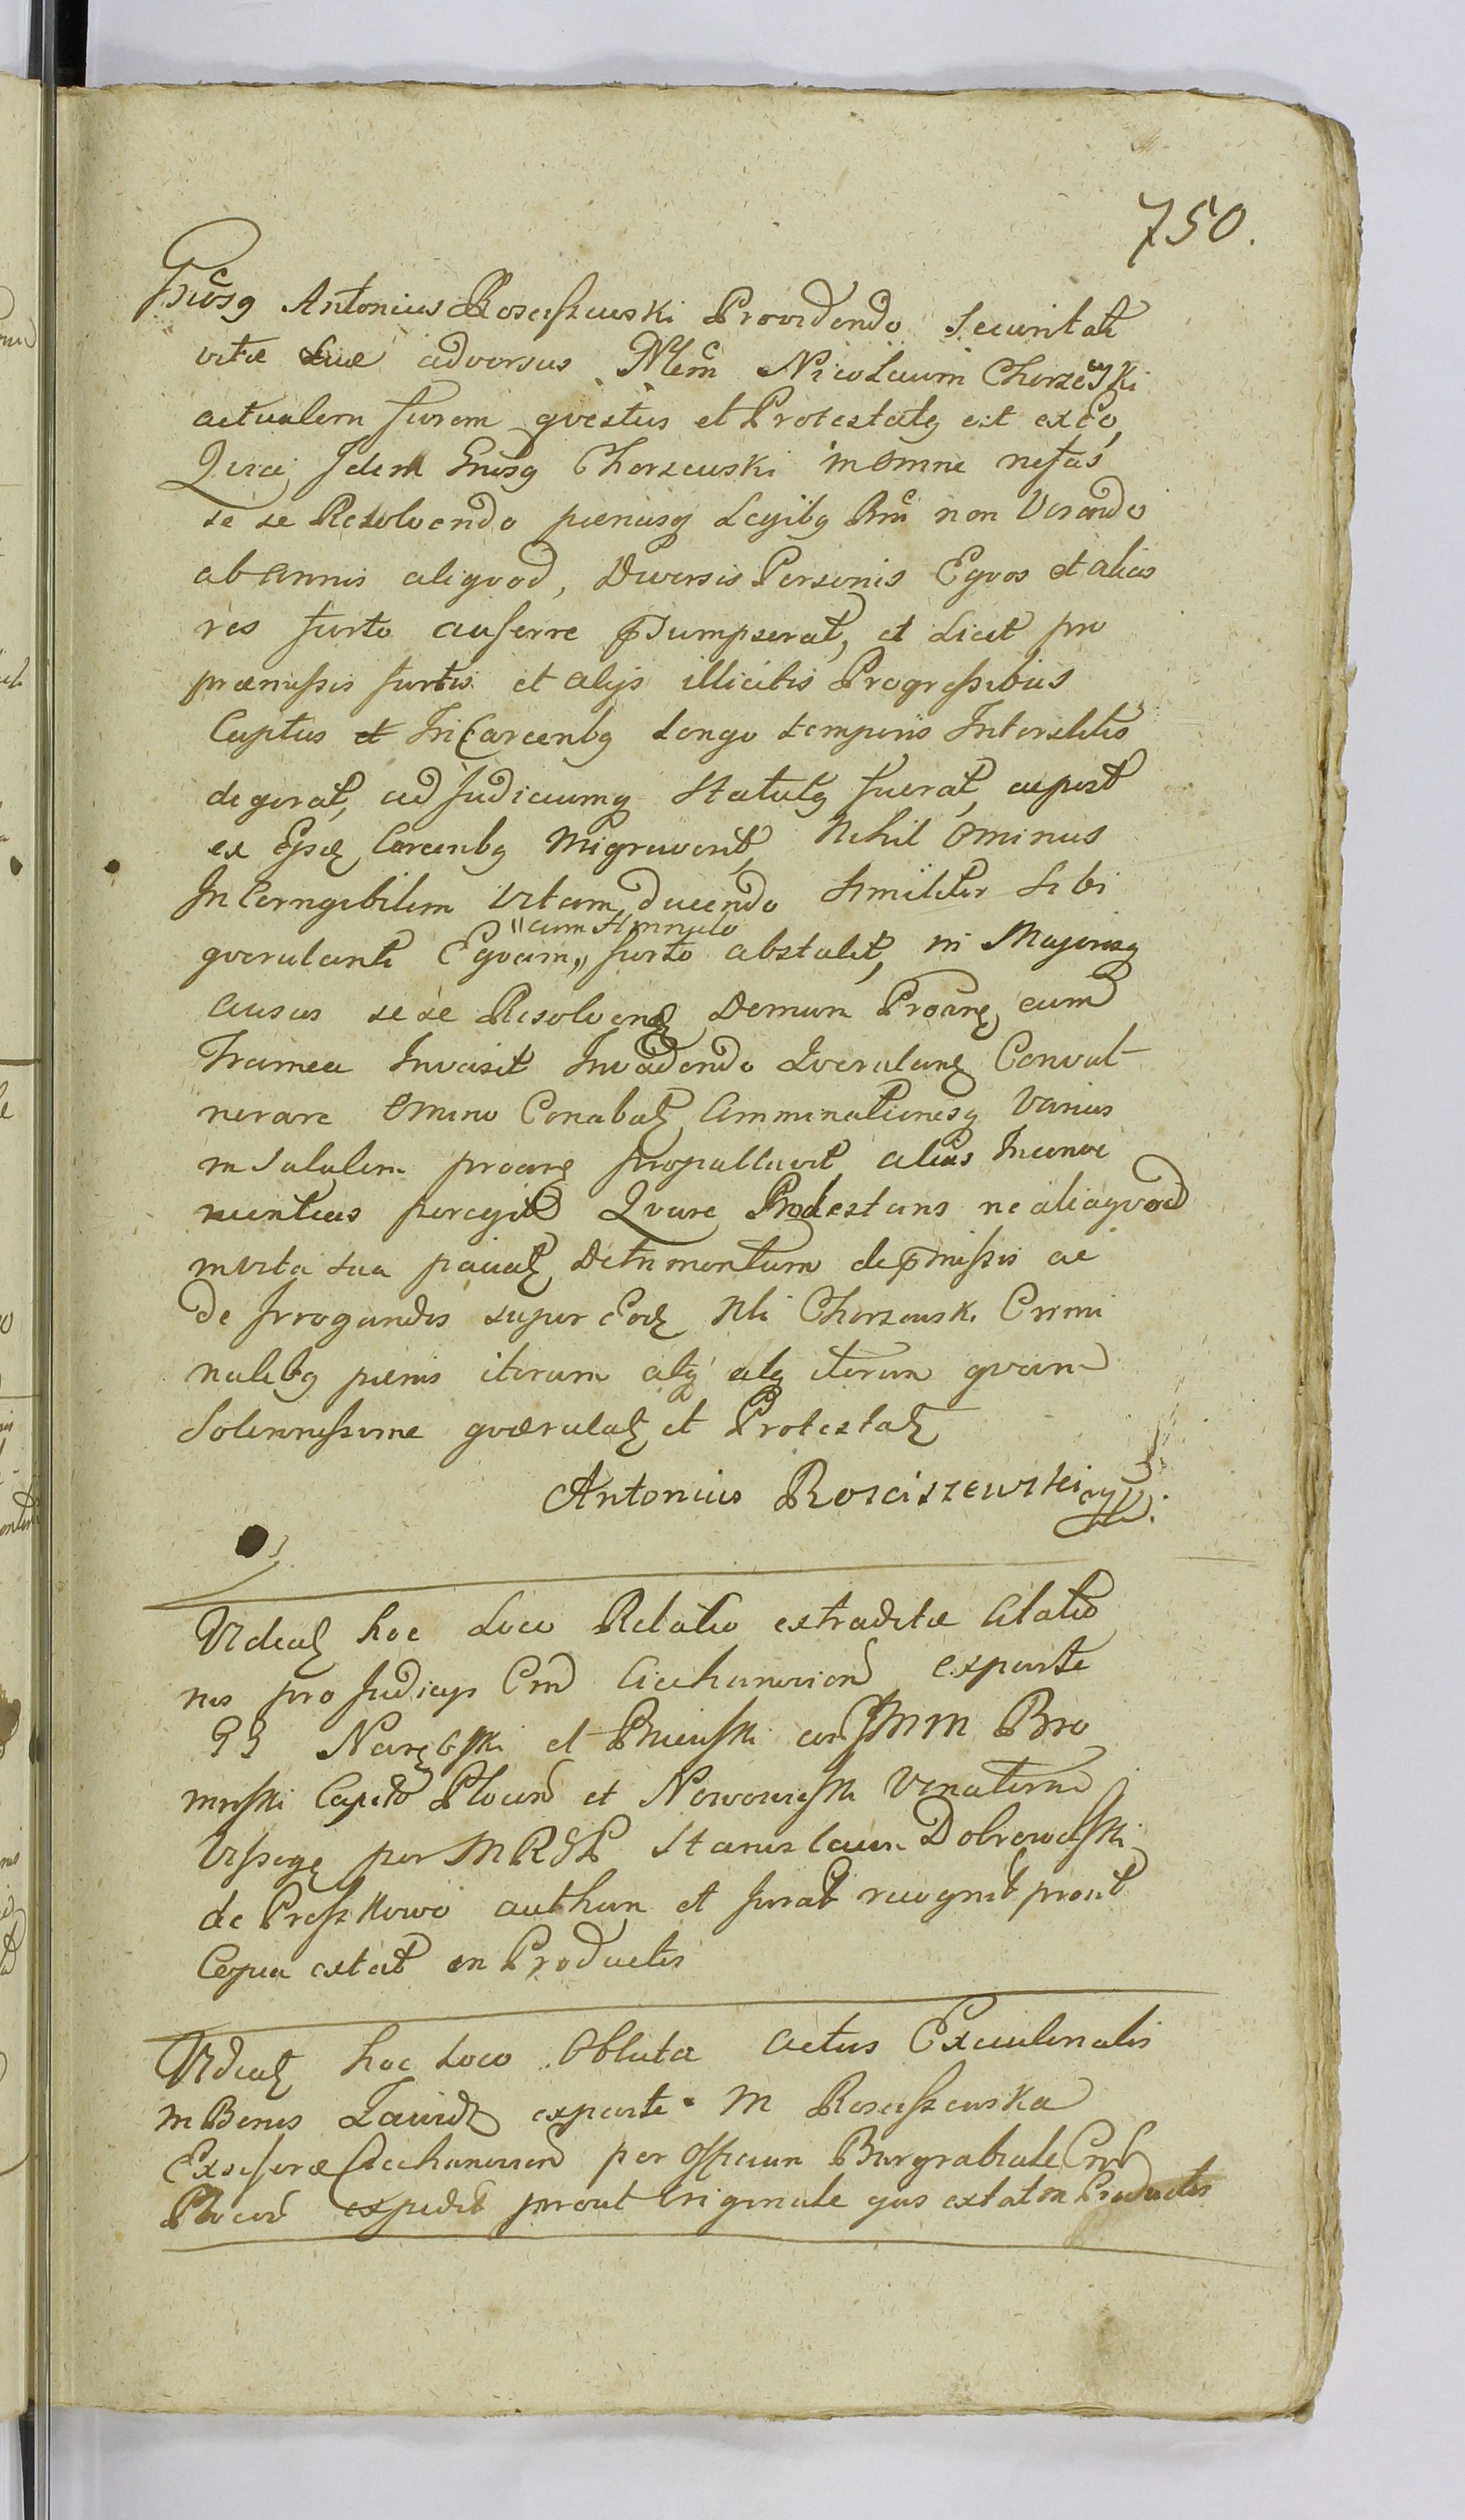 750.
Antonius Rosciszewski Providendo Securitati
vitæ suæ adversus Nlem Nicolaum Chorzewski
actualem furem qvestus et Protestatq est ex Eo,
Qvia Idem Gnosq Chorzewski in omne nefas
se se Resolvendo pænasq Legibq non Verendo
ab annis aliqvod, Diversis Personis Eqvos et alias
res furto auferre psumpserat, et Licet pro
præmissis furtis et alijs illicitis Progressibus
Captus et In Carceribq longo temporis Interstitio
degerat, ad Judiciumq Statutq fuerat, ac post
ex Ejsdē Carceribq Migraverit, Nihil Ominus
In Corrigibilem Vitam ducendo Similiter Sibi
"cum Hinnulo
qverulanti Eqvam" furto abstulit, in Majoresq
ausus se se Resolvend Demum Proine cum
Framea Invasit Invadendo Qverulant Convul-
nerare Omnino Conabat Comminationesq Varias
in Salutem propallavit alias Inconve
nientias peregit Qvare Protestans ne aliqvod
in vita sua patiat, Detrimentum de pmissis ac
de Irrogandis super Eod Nli Chorzewski Crimi
nalibq pænis iterum atq atq iterum qvam
Solennissime qværulat et Protestat
Antonius Rosciszewski
Videat hoc Loco Relatio extraditæ Citatio
nis pro Judicijs Ciechanovien ex parte
GG Narzęski et con MM Bro
miski Capit Plocen et Nowowieski Venatorem
per MRGL Stanislaum Dobrowolski
de authen et Jurat recognit prout
Copia extat in Productis
Videat hoc Loco Oblata actus
in Bonis ex parte M Rosciszewska
Ensiferæ Ciechanovien per Officium Burgrabiale
Plocen expedit prout Originale ejus extat in Productis